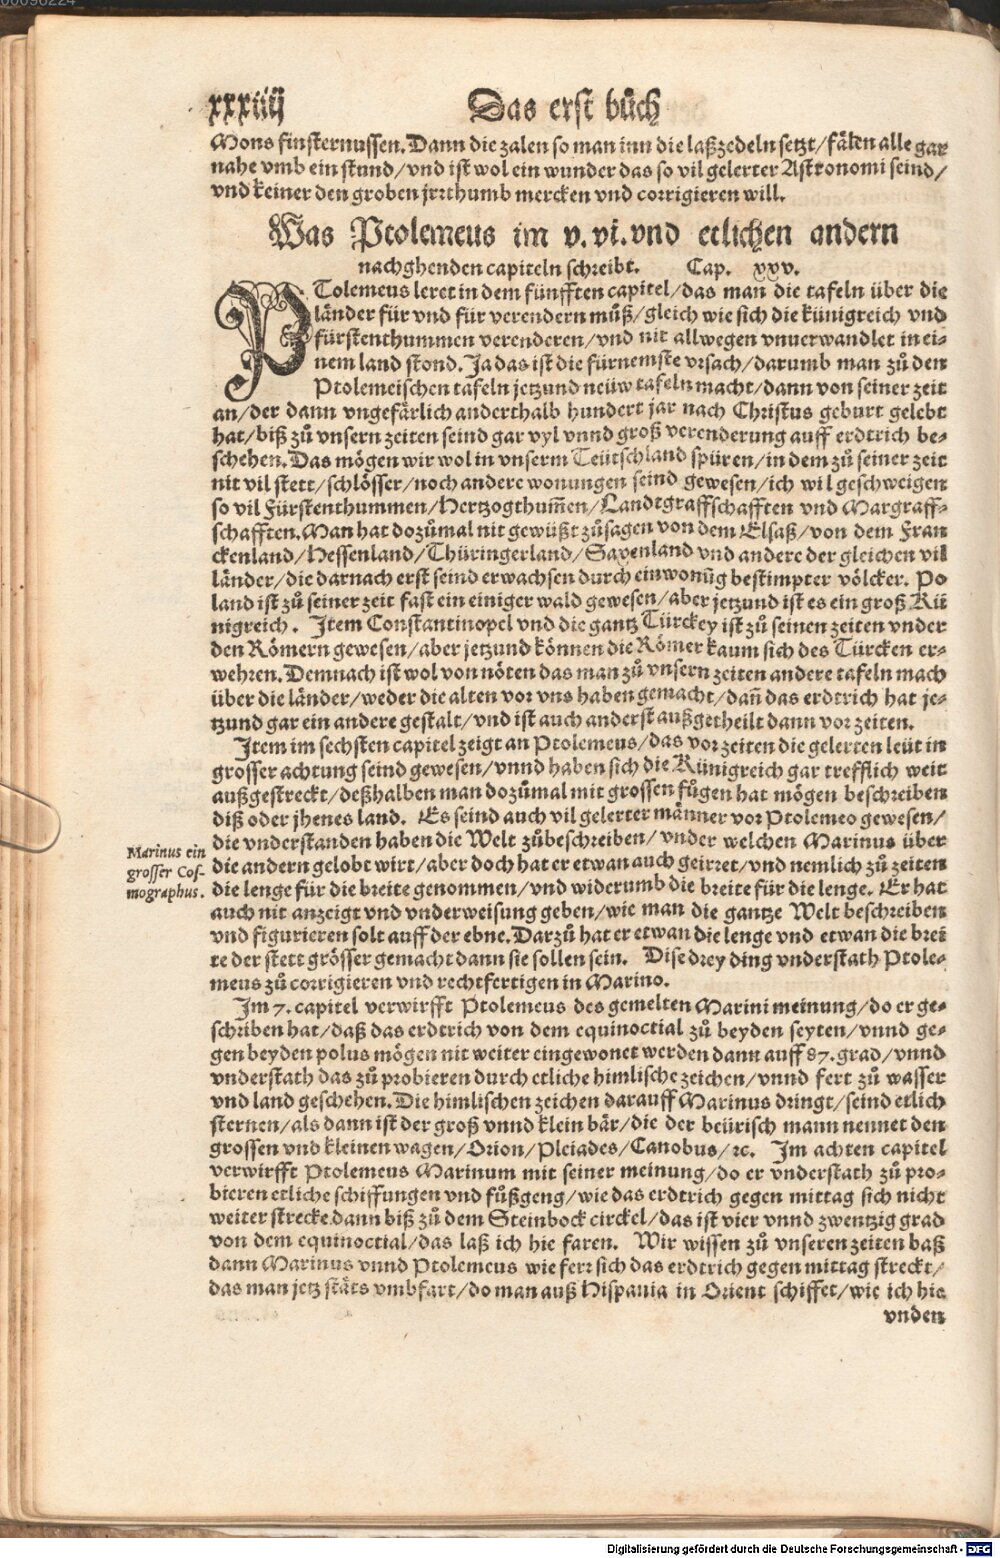 xxxiiij
Das erst bůch
Mons finsternussen. Dann die zalen so man inn die laßzedeln setzt/fälen alle gar
nahe vmb ein stund/vnd ist wol ein wunder das so vil gelerter Astronomi seind/
vnd keiner den groben jrrthumb mercken vnd corrigieren will.
Was Ptolemeus im v. vi. vnd etlichen andern
nachghenden capiteln schreibt. Cap. xxv.
PTolemeus leret in dem fünfften capitel/das man die tafeln über die
länder für vnd für verendern můß/gleich wie sich die künigreich vnd
fürstenthummen verenderen/vnd nit allwegen vnuerwandlet in ei-
nem land stond. Ja das ist die fürnemste vrsach/darumb man zů den
Ptolemeischen tafeln jetzund neüw tafeln macht/dann von seiner zeit
an/der dann vngefärlich anderthalb hundert jar nach Christus geburt gelebt
hat/biß zů vnsern zeiten seind gar vyl vnnd groß verenderung auff erdtrich be-
schehen. Das mögen wir wol in vnserm Teütschland spüren/in dem zů seiner zeit
nit vil stett/schlösser/noch andere wonungen seind gewesen/ich wil geschweigen
so vil Fürstenthummen/Hertzogthum̄en/Landtgraffschafften vnd Margraff-
schafften. Man hat dozůmal nit gewüßt zůsagen von dem Elsaß/von dem Fran
ckenland/Hessenland/Thüringerland/Saxenland vnd andere der gleichen vil
länder/die darnach erst seind erwachsen durch einwonūg bestimpter völcker. Po
land ist zů seiner zeit fast ein einiger wald gewesen/aber jetzund ist es ein groß Kü
nigreich. Item Constantinopel vnd die gantz Türckey ist zů seinen zeiten vnder
den Römern gewesen/aber jetzund können die Römer kaum sich des Türcken er-
wehren. Demnach ist wol von nöten das man zů vnsern zeiten andere tafeln mach
über die länder/weder die alten vor vns haben gemacht/dañ das erdtrich hat je-
tzund gar ein andere gestalt/vnd ist auch anderst außgetheilt dann vor zeiten.
Item im sechsten capitel zeigt an Ptolemeus/das vor zeiten die gelerten leüt in
grosser achtung seind gewesen/vnnd haben sich die Künigreich gar trefflich weit
außgestreckt/deßhalben man dozůmal mit grossen fůgen hat mögen beschreiben
diß oder jhenes land. Es seind auch vil gelerter männer vor Ptolemeo gewesen/
die vnderstanden haben die Welt zůbeschreiben/vnder welchen Marinus über
die andern gelobt wirt/aber doch hat er etwan auch geirret/vnd nemlich zů zeiten
die lenge für die breite genommen/vnd widerumb die breite für die lenge. Er hat
auch nit anzeigt vnd vnderweisung geben/wie man die gantze Welt beschreiben
vnd figurieren solt auff der ebne. Darzů hat er etwan die lenge vnd etwan die brei
te der stett grösser gemacht dann sie sollen sein. Dise drey ding vnderstath Ptole-
meus zů corrigieren vnd rechtfertigen in Marino.
Marinus ein
grosser Cos-
mographus.
Im 7. capitel verwirfft Ptolemeus des gemelten Marini meinung/do er ge-
schriben hat/daß das erdtrich von dem equinoctial zů beyden seyten/vnnd ge-
gen beyden polus mögen nit weiter eingewonet werden dann auff 87. grad/vnnd
vnderstath das zů probieren durch etliche himlische zeichen/vnnd fert zů wasser
vnd land geschehen. Die himlischen zeichen darauff Marinus dringt/seind etlich
sternen/als dann ist der groß vnnd klein bär/die der beürisch mann nennet den
grossen vnd kleinen wagen/Orion/Pleiades/Canobus/ꝛc. Im achten capitel
verwirfft Ptolemeus Marinum mit seiner meinung/do er vnderstath zů pro-
bieren etliche schiffungen vnd fůßgeng/wie das erdtrich gegen mittag sich nicht
weiter strecke dann biß zů dem Steinbock circkel/das ist vier vnnd zwentzig grad
von dem equinoctial/das laß ich hie faren. Wir wissen zů vnseren zeiten baß
dann Marinus vnnd Ptolemeus wie ferr sich das erdtrich gegen mittag streckt/
das man jetz stäts vmbfart/do man auß Hispania in Orient schiffet/wie ich hie
vnden
Digitalisierung gefördert durch die Deutsche Forschungsgemeinschaft - DFG